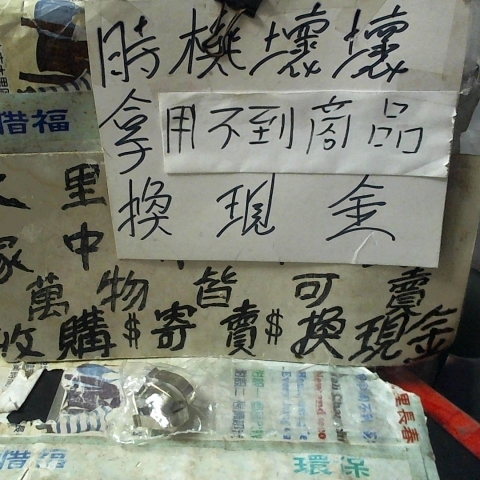 時機壞壞
拿用不到商品
換現金
惜福
里
家中
萬物皆可賣
收購$寄賣$換現金
里長春
惜福
環保